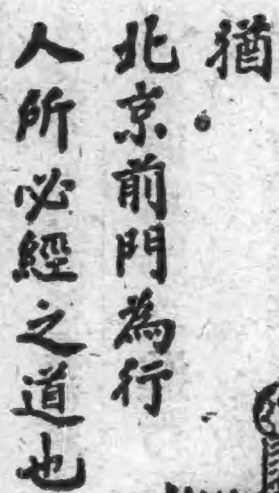 猶
北京前門為行
人所必經之道也